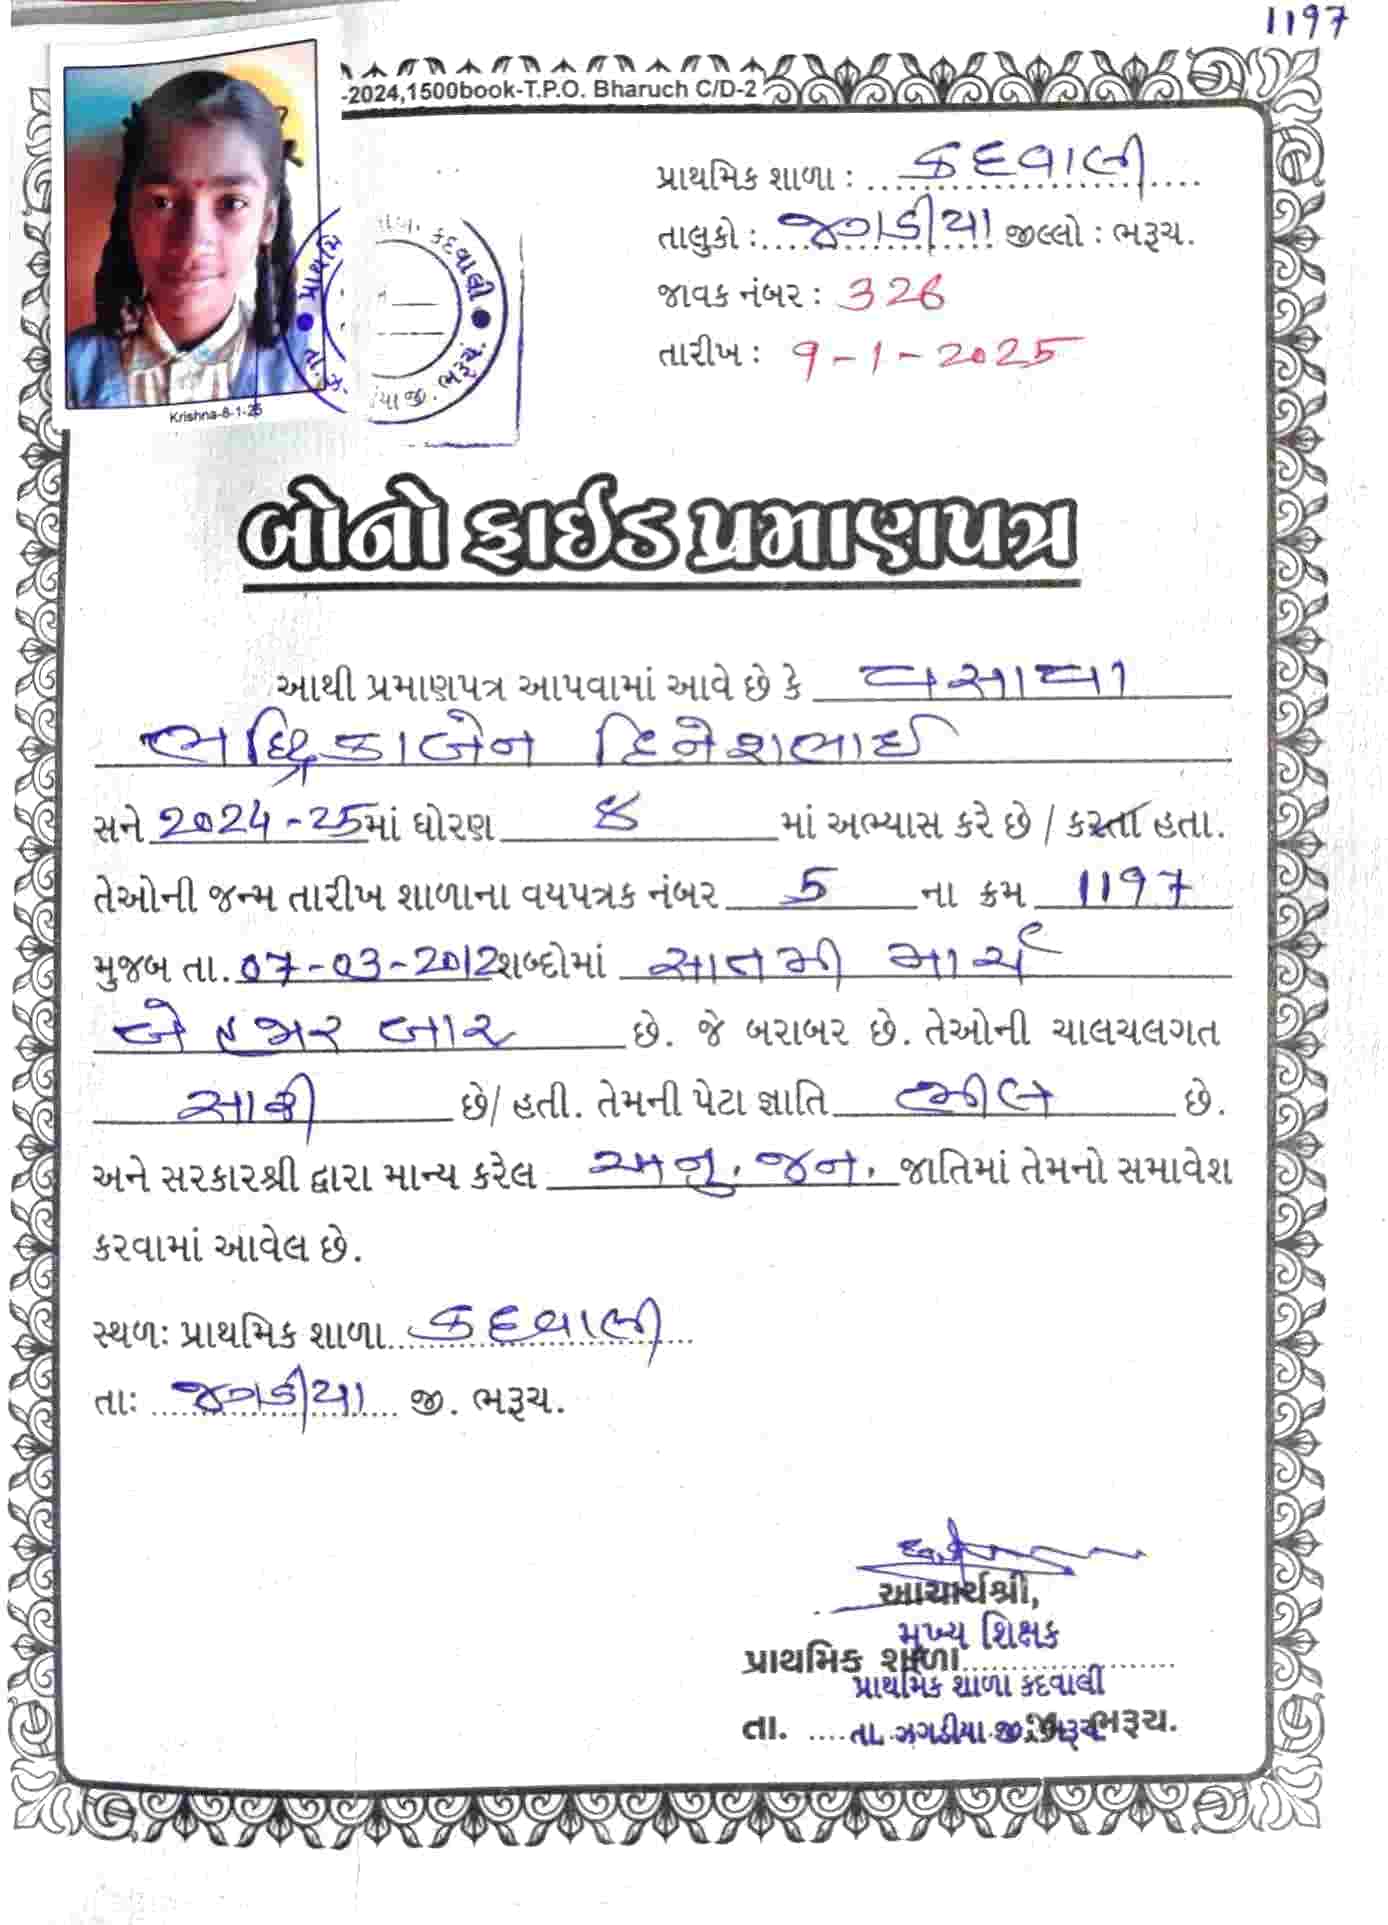 1197
-2024,1500book-T.P.O. Bharuch C/D-2
પ્રાથમિક શાળા : કદવાલી
તાલુકો : જગડીયા જીલ્લો : ભરૂચ.
જાવક નંબર : 326
તારીખ : 9-1-2025
પ્રાથમિ
કદવાલી
તા. ઝ.
યા જી. ભરૂચ.
Krishna-8-1-25
બોનોફાઈડ પ્રમાણપત્ર
આથી પ્રમાણપત્ર આપવામાં આવે છે કે વસાવા
ભદ્રિકાબેન દિનેશભાઈ
સને 2024-25માં ધોરણ ૭ માં અભ્યાસ કરે છે / કરતા હતા.
તેઓની જન્મ તારીખ શાળાના વયપત્રક નંબર 5 ના ક્રમ 1197
મુજબ તા. 07-03-2012 શબ્દોમાં સાતમી માર્ચ
બે હજાર બાર છે. જે બરાબર છે. તેઓની ચાલચલગત
સારી છે/ હતી. તેમની પેટા જ્ઞાતિ ભીલ છે.
અને સરકારશ્રી દ્વારા માન્ય કરેલ અનુ. જન. જાતિમાં તેમનો સમાવેશ
કરવામાં આવેલ છે.
સ્થળઃ પ્રાથમિક શાળા કદવાલી
તાઃ જગડીયા જી. ભરૂચ.
આચાર્યશ્રી,
મુખ્ય શિક્ષક
પ્રાથમિક શાળા
પ્રાથમિક શાળા કદવાલી
તા. તા. ઝગડીયા જી. ભરૂચ ભરૂચ.